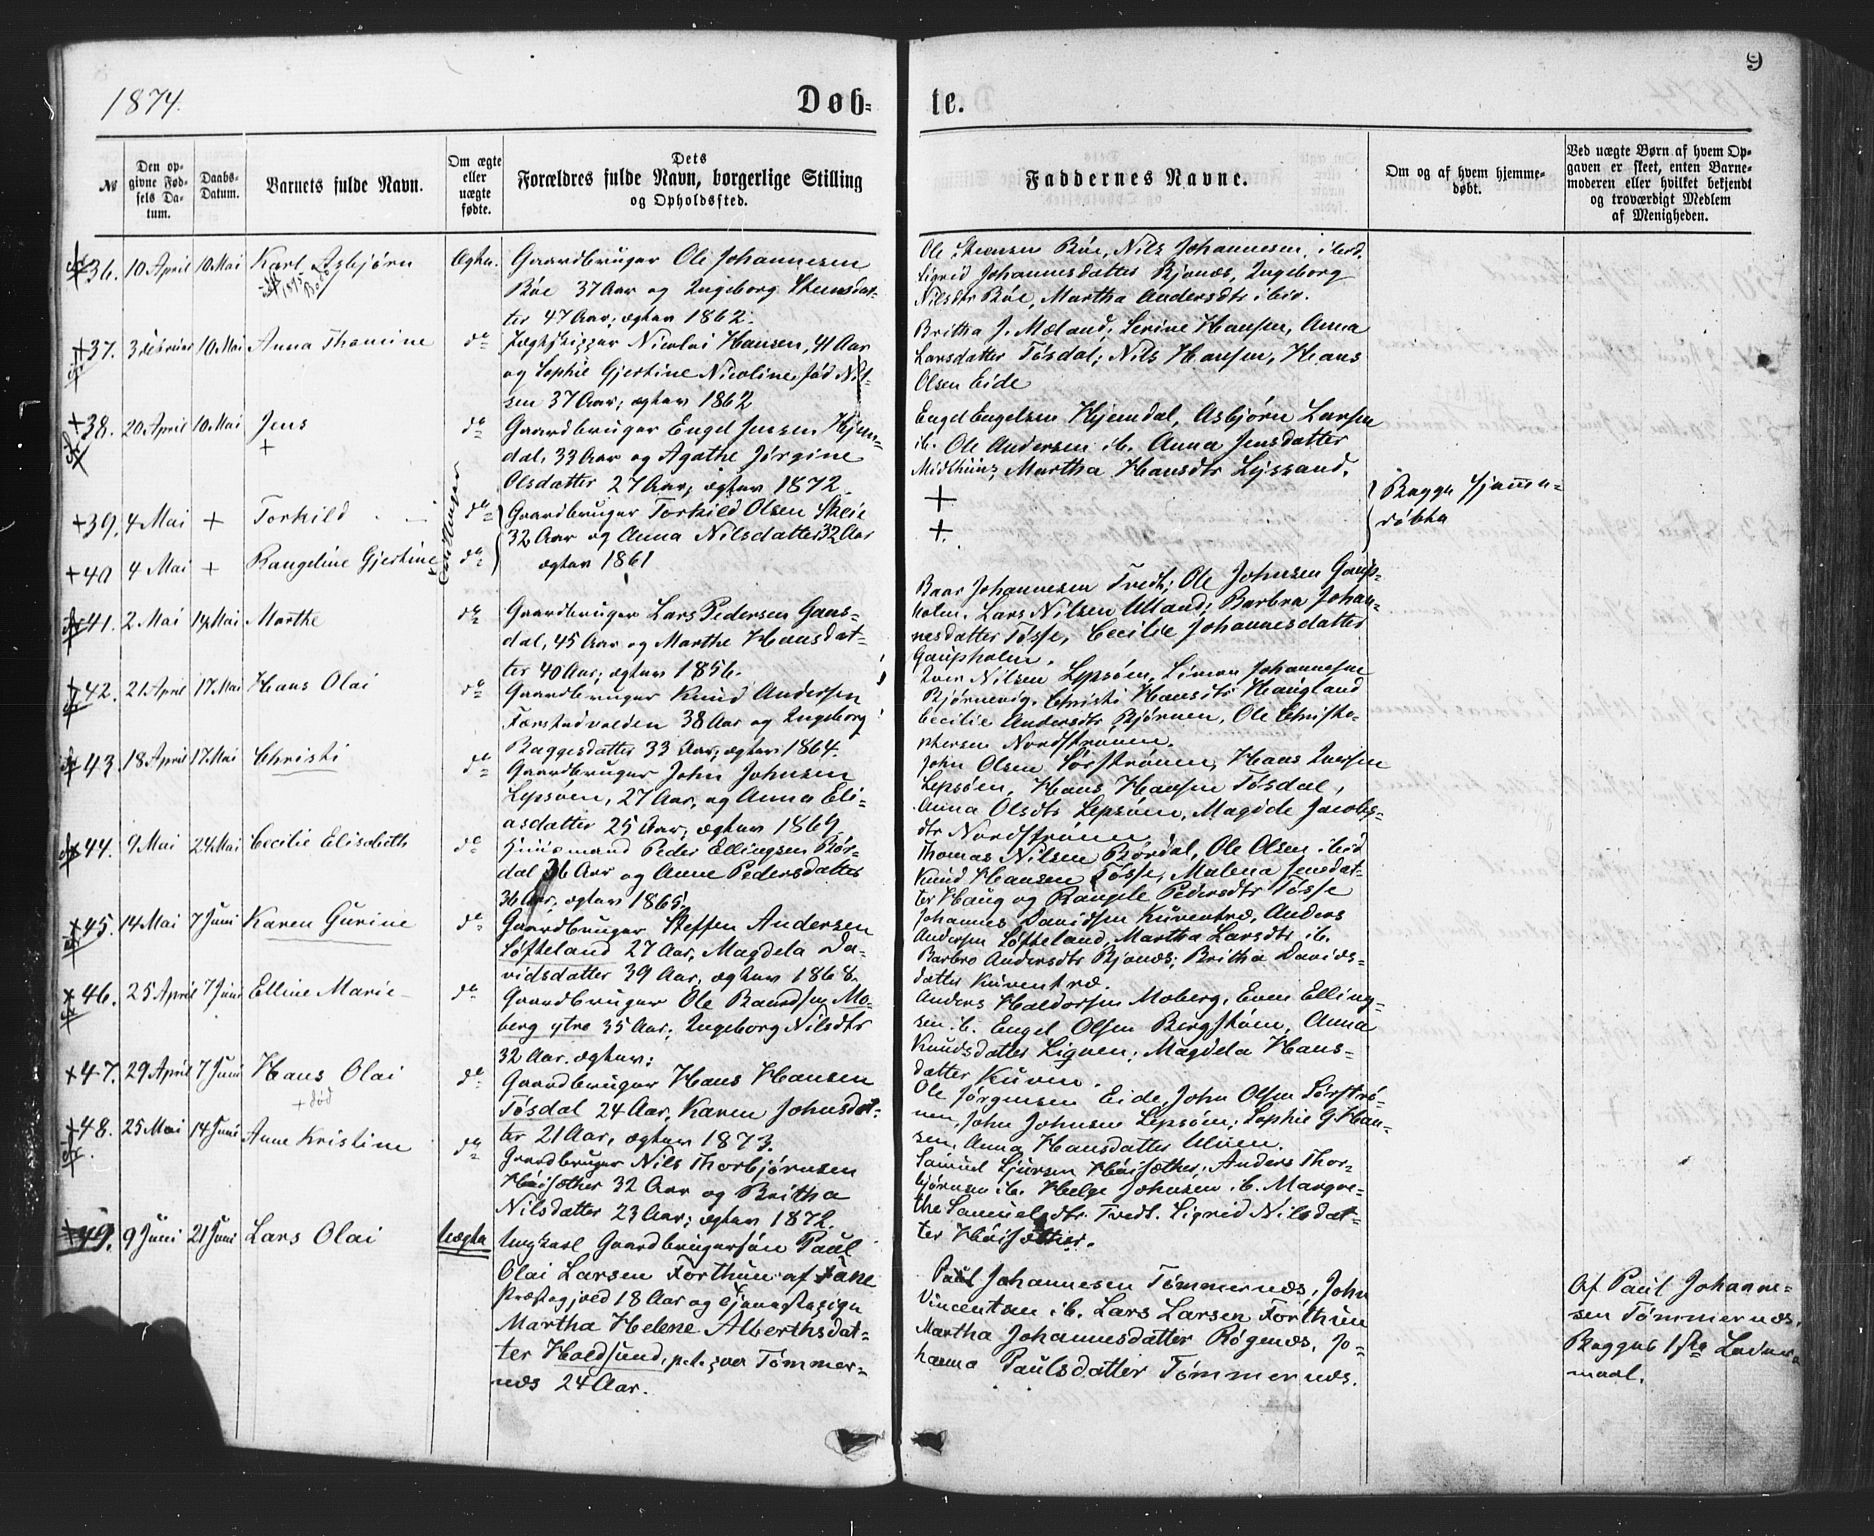 1874.
Døb-
te.
9
№
Den op-
givne Fød-
sels Da-
tum.
Daabs-
Datum.
Barnets fulde Navn.
Om ægte
eller
uægte
fødte.
Dets
Forældres fulde Navn, borgerlige Stilling
og Opholdssted.
Faddernes Navne.
Om og af hvem hjemme-
døbt.
Ved uægte Børn af hvem Op-
gaven er skeet, enten Barne-
moderen eller hvilket bekjendt
og troværdigt Medlem
af Menigheden.
36. 10 April 10 Mai Karl Asbjørn Ægte. Gaardbruger Ole Johannesen
Bøe 37 Aar og Ingeborg Steensdat-
ter 47 Aar; ægtev 1862.
Ole Steensen Bøe, Nils Johannesen, ibid.
Sigrid Johannesdatter Bjånæs, Ingeborg
Nilsdtr Bøe, Martha Andersdtr ibid.
+37. 3 Februar 10 Mai Anna Thomine do Jægtskipper Nicolai Hansen, 41 Aar
og Sophie Gjertine Nicoline, fød Nil-
sen 37 Aar; ægtev 1862
Britha J. Mæland, Serine Hansen, Anna
Larsdatter Tøsdal; Nils Hansen, Hans
Olsen Eide
+38. 20 April 10 Mai Jens do Gaardbruger Engel Jensen Hjem-
+
dal, 33 Aar og Agathe Jørgine
Olsdatter 27 Aar, ægtev 1872.
Engel Engelsen Hjemdal, Asbjørn Larsen
ib. Ole Andersen ib. Anna Jensdatter
Midthuns, Martha Hansdtr Lyssand.
+39. 4 Mai + Torkild do Gaardbruger Torkild Olsen Skeie
Tvillinger
32 Aar og Anna Nilsdatter 32 Aar
+
Begge hjemme-
døbte
+40 4 Mai + Rangeline Gjertine do ægtev 1861
+.
41. 2 Mai 14 Mai Marthe do Gaardbruger Lars Pedersen Gaus-
dal, 45 Aar og Marthe Hansdat-
ter 40 Aar; ægtev 1856.
Baar Johannesen Tvedt; Ole Johnsen Gaup-
holm. Lars Nilsen Ulland; Barbra Johan-
nesdatter Tøsse, Cecilie Johannesdatter
Gaupholm.
42. 21 April 17 Mai Hans Olai do Gaardbruger Knud Andersen
Færstadvolden 38 Aar og Ingeborg
Baggesdatter 33 Aar; ægtev 1864.
Iver Nilsen Lepsøen, Simon Johannesen
Bjørnevig. Christi Hansdtr Haugland
Cecilie Andersdtr Bjørnen, Ole Christo-
phersen Nordstrønen.
43. 18 April 17 Mai Christi do Gaardbruger John Johnsen
Lepsøen, 27 Aar, og Anna Eli-
asdatter 25 Aar; ægtev 1869
John Olsen Sørstrønen, Hans Iversen
Lepsøen, Hans Hansen Tøsdal,
Anna Olsdtr Lepsøen, Magdele Jacobs-
dtr Nordstrønen
44. 9 Mai 24 Mai Cecilie Elisabeth do Huusmand Peder Ellingsen Bør-
dal 36 Aar og Anne Pedersdatter
36 Aar, ægtev 1865.
Thomas Nilsen Børdal, Ole Olsen ibid
Knud Hansen Tøsse, Malena Jensdat-
ter Haug og Rangele Pedersdtr Tøsse
45. 14 Mai 7 Juni Karen Gurine do Gaardbruger Steffen Andersen
Søfteland 27 Aar, Magdela Da-
vidsdatter 39 Aar, ægtev 1868.
Johannes Davidsen Kuventræ, Anders
Andersen Søfteland, Martha Larsdtr ib.
Barbro Andersdtr Bjånæs; Britha Davids-
datter Kuventræ.
46. 25 April 7 Juni Elline Marie do Gaardbruger Ole Baardsen Mo-
berg ytre 35 Aar; Ingeborg Nilsdtr
32 Aar. ægtev:
Anders Haldorsen Moberg, Even Elling-
sen ib. Engel Olsen Bergstøen, Anna
Knudsdatter Ligven; Magdela Hans-
datter Kuven.
+47. 29 April 7 Juni Hans Olai do Gaardbruger Hans Hansen
+ død
Tøsdal 24 Aar, Karen Johnsdat-
ter 21 Aar, ægtev 1873.
Ole Jørgensen Eide, John Olsen Sørstrø-
nen, John Johnsen Lepsøen; Sophie G. Han-
sen, Anna Hansdatter Ulven.
48. 25 Mai 14 Juni Anne Kristine do Gaardbruger Nils Thorbjørnsen
Høisæther 32 Aar og Britha
Nilsdatter 23 Aar; ægtev 1872.
Samuel Sjursen Høisæther, Anders Thor-
bjørnsen ib. Helge Johnsen ib. Margre-
the Samuelsdtr Tvedt. Sigrid Nilsdat-
ter Høisæther.
+49. 9 Juni 21 Juni Lars Olai Uægte Ungkarl Gaardbrugersøn Paul
Olai Larsen Forthun af Fane
Præstegjeld 18 Aar og Tjenestepige
Martha Helene Alberthsdat-
ter Holdsund, p.t. paa Tømmer-
næs 24 Aar.
Paul Johannesen Tømmernæs, John
Vincentsen ib. Lars Larsen Forthun
Martha Johannesdatter Røgenæs, Jo-
hanna Paulsdatter Tømmernæs.
Af Paul Johanne-
sen Tømmernæs.
Begges 1ste Leiers-
maal.